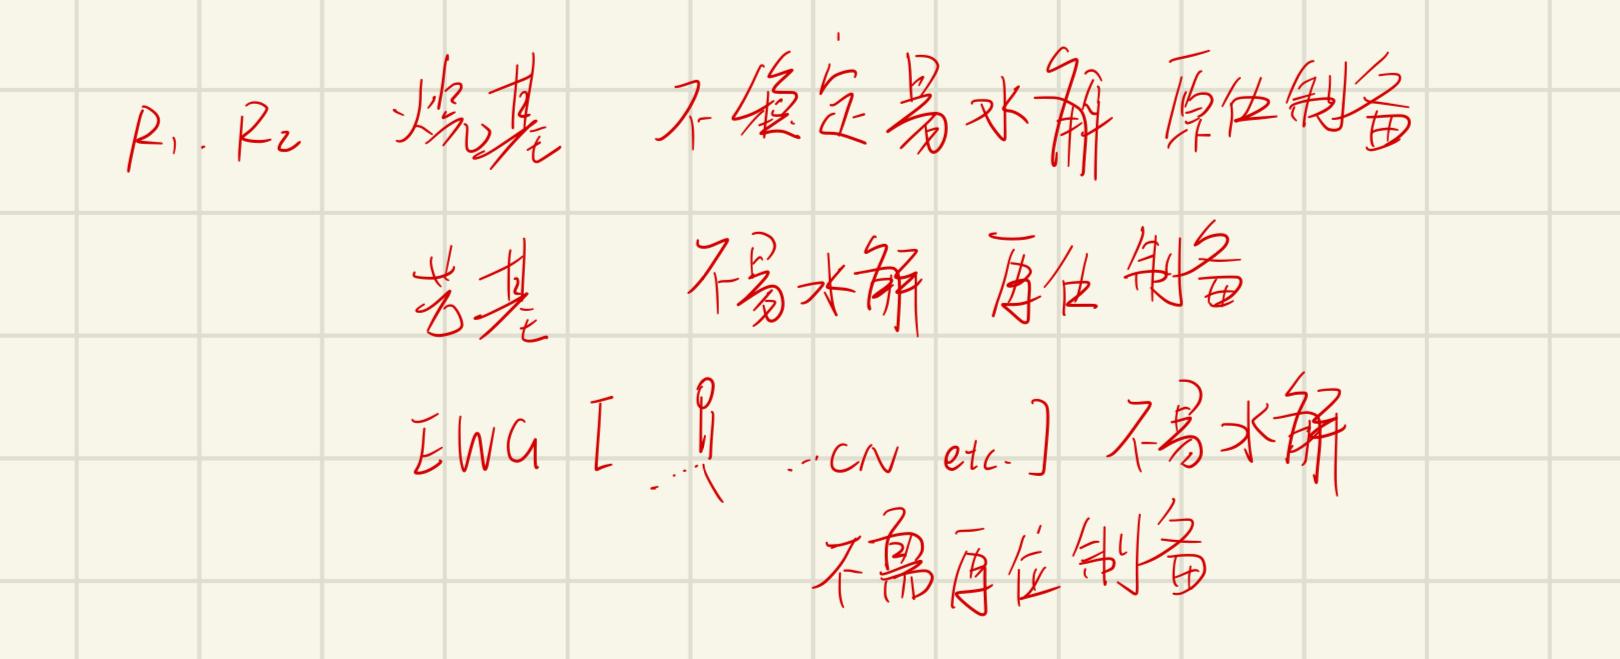 R₁. R₂ 烷基 不稳定易水解 原位制备
芳基 不易水解 原位制备
EWG [ O ...CN etc.] 不易水解
不需原位制备